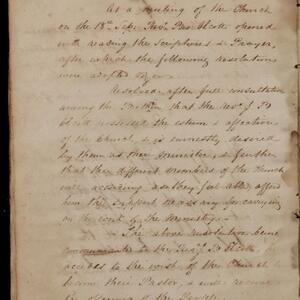 At a meeting of the Church
on the 18th Revd opened
with reading the Scriptures & Prayer,
after which the following resolutions
were adopted
Resolved after full consultation
among the that the Revd J D
possessed the esteem & affections
of the Church, & is earnestly desired
by them as their minister, & further
that the different members of the Church
will according as they are able, afford
him the support necessary for carrying
on the work of the ministry.
The above resolution being
communicated to the Revd J D he
to the wish of the Church to
become their Pastor, &
of the